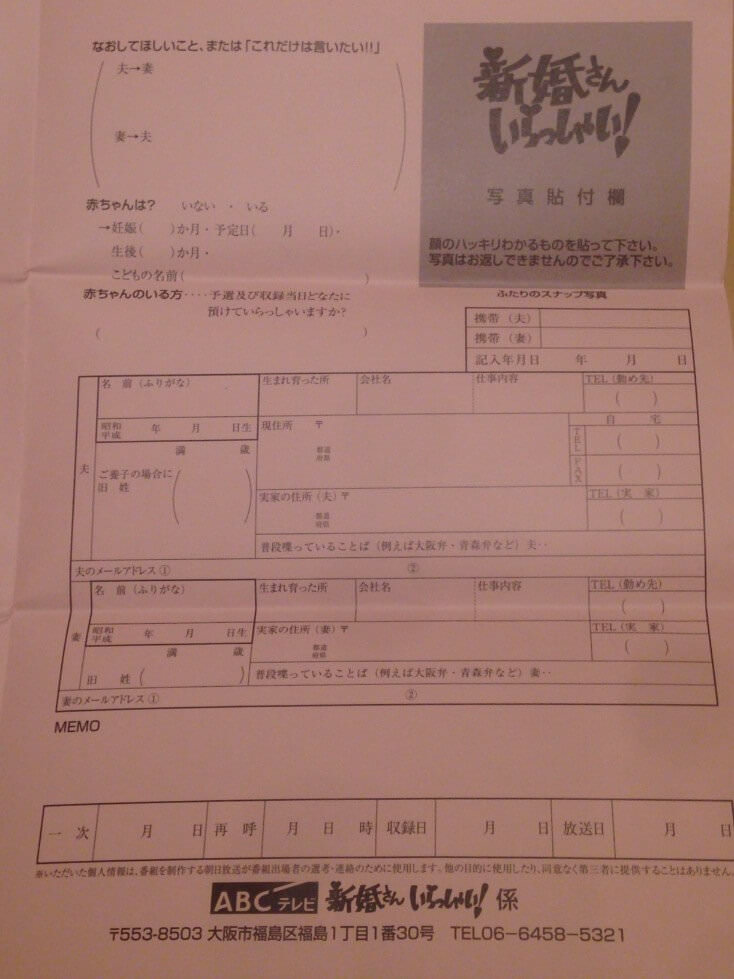 なおしてほしいこと、または「これだけは言いたい!!」
夫→妻
妻→夫
新婚さん
いらっしゃい!
写真貼付欄
顔のハッキリわかるものを貼って下さい。
写真はお返しできませんのでご了承下さい。
ふたりのスナップ写真
赤ちゃんは? いない ・ いる
→妊娠( )か月・予定日( 月 日)・
生後( )か月・
こどもの名前( )
赤ちゃんのいる方‥‥予選及び収録当日どなたに
預けていらっしゃいますか?
( )
携帯(夫)
携帯(妻)
記入年月日 年 月 日
夫
名 前(ふりがな) 生まれ育った所 会社名 仕事内容 TEL(勤め先)
( )
昭和
平成
年 月 日生
満 歳
現住所 〒
都道
府県
自 宅
TEL ( )
FAX ( )
ご養子の場合に
旧 姓 ( )
実家の住所(夫)〒 TEL(実 家)
都道
府県
( )
普段喋っていることば(例えば大阪弁・青森弁など)夫‥
夫のメールアドレス① ②
妻
名 前(ふりがな) 生まれ育った所 会社名 仕事内容 TEL(勤め先)
( )
昭和
平成
年 月 日生
満 歳
実家の住所(妻)〒 TEL(実 家)
都道
府県
( )
旧 姓( )
普段喋っていることば(例えば大阪弁・青森弁など)妻‥
妻のメールアドレス① ②
MEMO
一 次 月 日 再 呼 月 日 時 収録日 月 日 放送日 月 日
※いただいた個人情報は、番組を制作する朝日放送が番組出場者の選考・連絡のために使用します。他の目的に使用したり、同意なく第三者に提供することはありません。
ABCテレビ 新婚さんいらっしゃい! 係
〒553-8503 大阪市福島区福島1丁目1番30号 TEL06-6458-5321